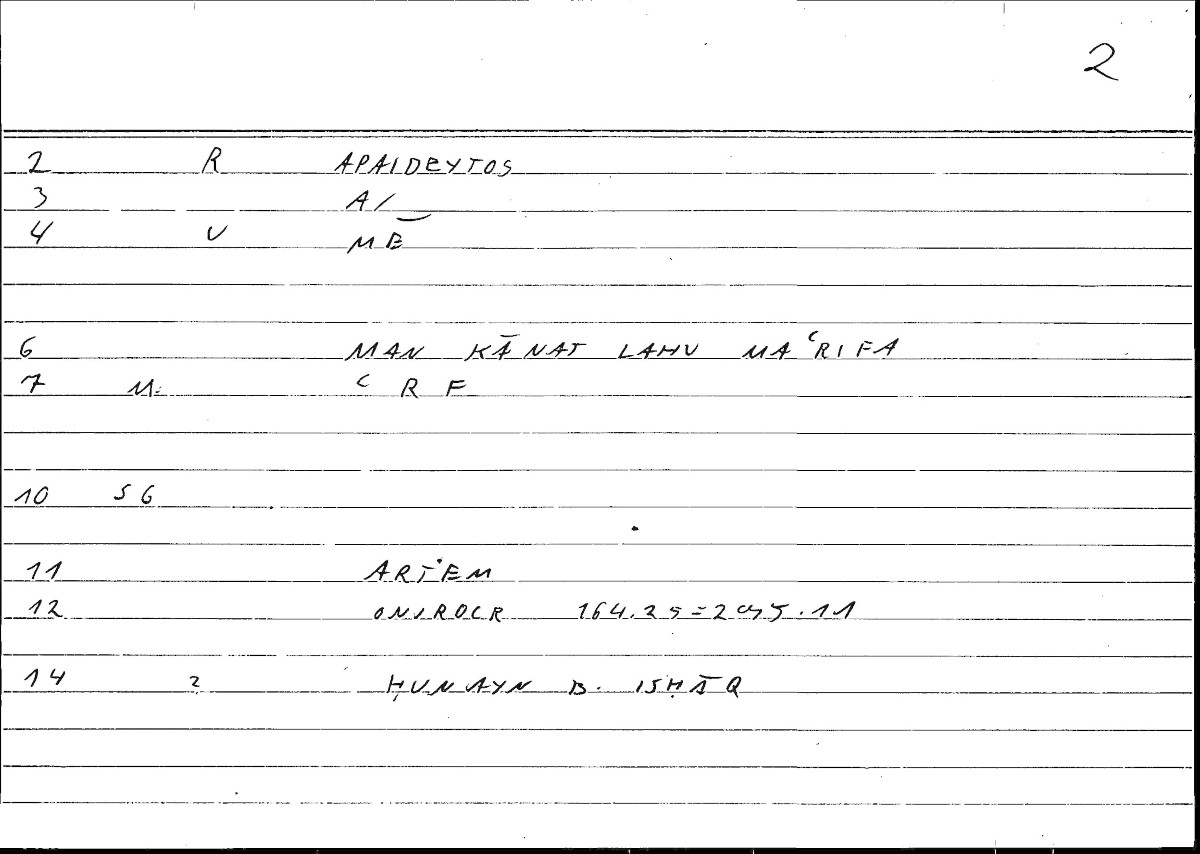 2
2 R APAIDEYTOS
3 A/
4 U MĒ
6 MAN KĀNAT LAHU MAʿRIFA
7 M. ʿRF
10 SG
11 ARTEM
12 ONIROCR 164.25=295.11
14 2 ḤUNAYN B. ISḤĀQ